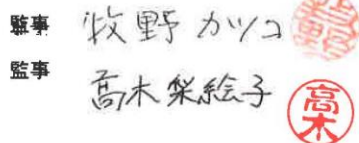 監事 牧野カツコ
監事 高木梨絵子 高木